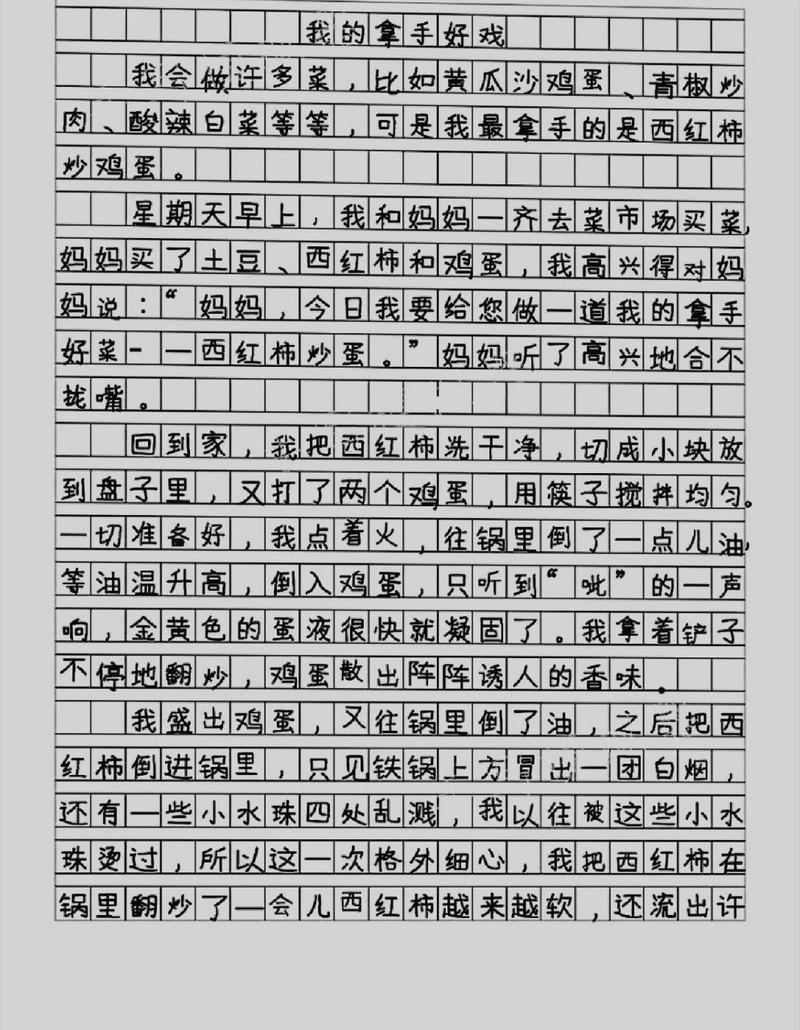 我的拿手好戏
我会做许多菜，比如黄瓜沙鸡蛋、青椒炒
肉、酸辣白菜等等，可是我最拿手的是西红柿
炒鸡蛋。
星期天早上，我和妈妈一齐去菜市场买菜，
妈妈买了土豆、西红柿和鸡蛋，我高兴得对妈
妈说：“妈妈，今日我要给您做一道我的拿手
好菜-一西红柿炒蛋。”妈妈听了高兴地合不
拢嘴。
回到家，我把西红柿洗干净，切成小块放
到盘子里，又打了两个鸡蛋，用筷子搅拌均匀。
一切准备好，我点着火，往锅里倒了一点儿油，
等油温升高，倒入鸡蛋，只听到“呲”的一声
响，金黄色的蛋液很快就凝固了。我拿着铲子
不停地翻炒，鸡蛋散出阵阵诱人的香味.
我盛出鸡蛋，又往锅里倒了油，之后把西
红柿倒进锅里，只见铁锅上方冒出一团白烟，
还有一些小水珠四处乱溅，我以往被这些小水
珠烫过，所以这一次格外细心，我把西红柿在
锅里翻炒了一会儿西红柿越来越软，还流出许